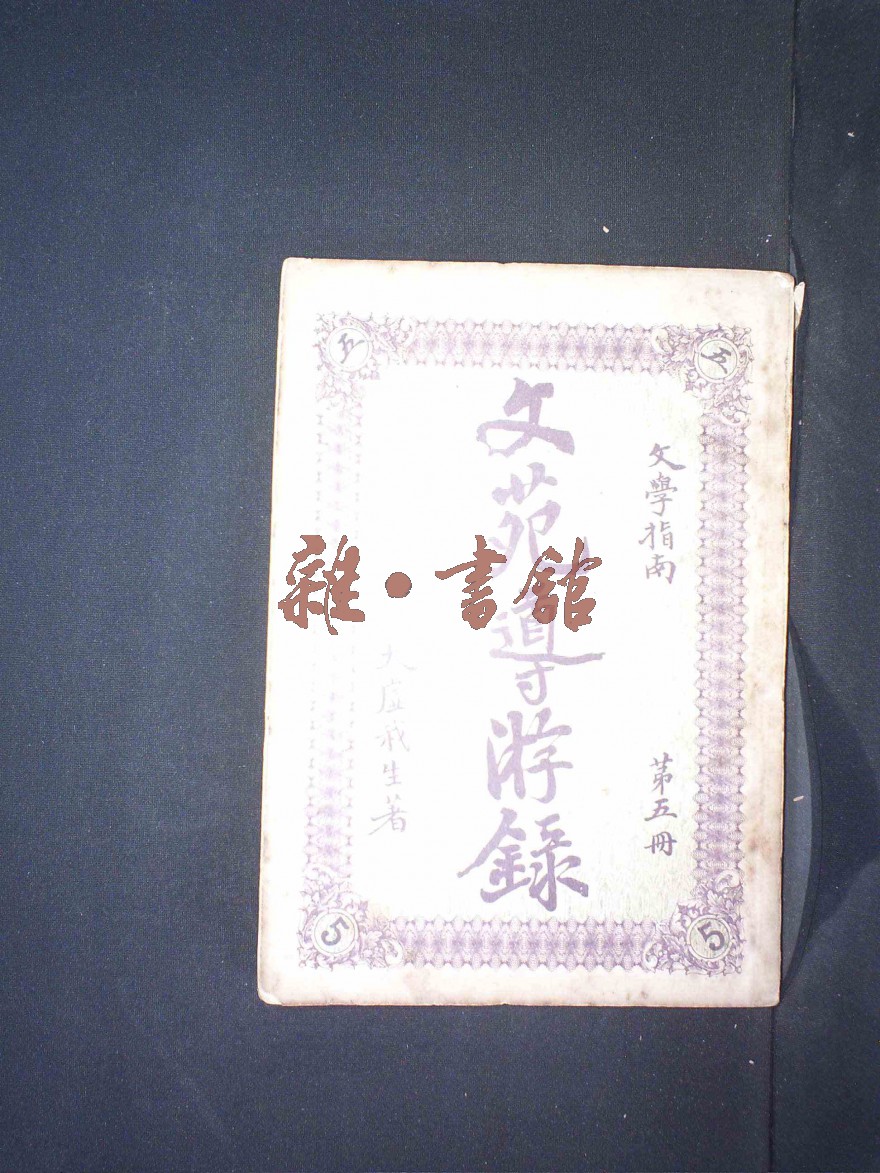 文學指南
第五冊
文苑導游錄
天虛我生著
雜•書館
五
五
5
5